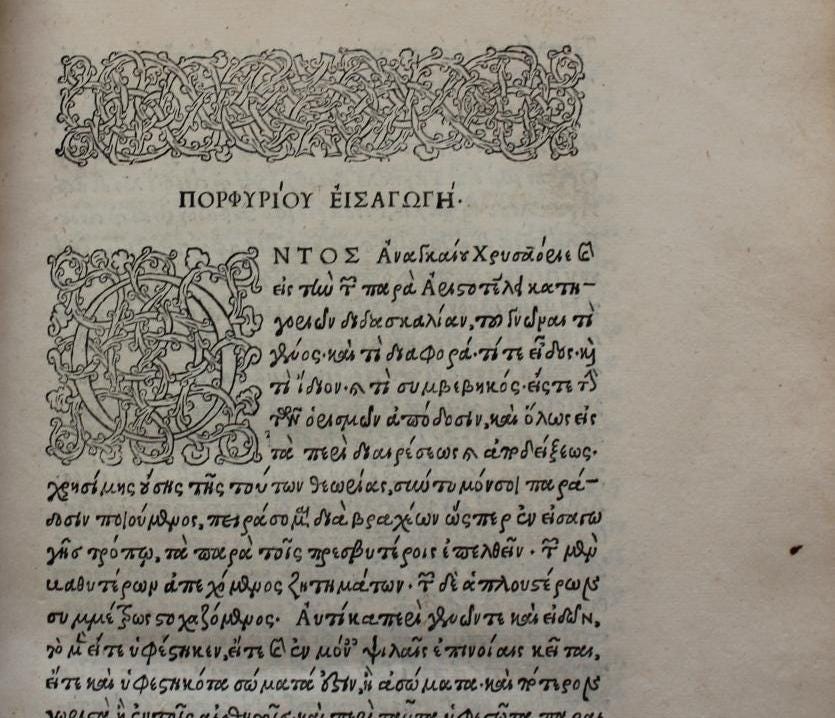 ΠΟΡΦΥΡΙΟΥ ἘΙΣΑΓΩΓΉ·
ΟΝΤΟΣ Ἀναγκαίου Χρυσαόριε καὶ
εἰς τὴν τῶν παρὰ Ἀριστοτέλει κατη-
γοριῶν διδασκαλίαν, τοῦ γνῶναι τί
γένος· καὶ τί διαφορά· τί τε εἶδος· καὶ
τί ἴδιον· καὶ τί συμβεβηκός· εἴς τε τὴν
τῶν ὁρισμῶν ἀπόδοσιν, καὶ ὅλως εἰς
τὰ περὶ διαιρέσεως καὶ ἀποδείξεως·
χρησίμης οὔσης τῆς τούτων θεωρίας, σύντομόν σοι παρά-
δοσιν ποιούμενος, πειράσομαι διὰ βραχέων ὥσπερ ἐν εἰσαγω
γῆς τρόπῳ, τὰ παρὰ τοῖς πρεσβυτέροις ἐπελθεῖν· τῶν μὲν
βαθυτέρων ἀπεχόμενος ζητημάτων· τῶν δὲ ἁπλουστέρων
συμμέτρως στοχαζόμενος· Αὐτίκα περὶ γενῶν τε καὶ εἰδῶν,
τὸ μὲν εἴτε ὑφέστηκεν, εἴτε καὶ ἐν μόναις ψιλαῖς ἐπινοίαις κεῖται,
εἴτε καὶ ὑφεστηκότα σώματά ἐστιν, ἢ ἀσώματα· καὶ πότερον
χωριστὰ ἢ ἐν τοῖς αἰσθητοῖς καὶ περὶ ταῦτα ὑφεστῶτα